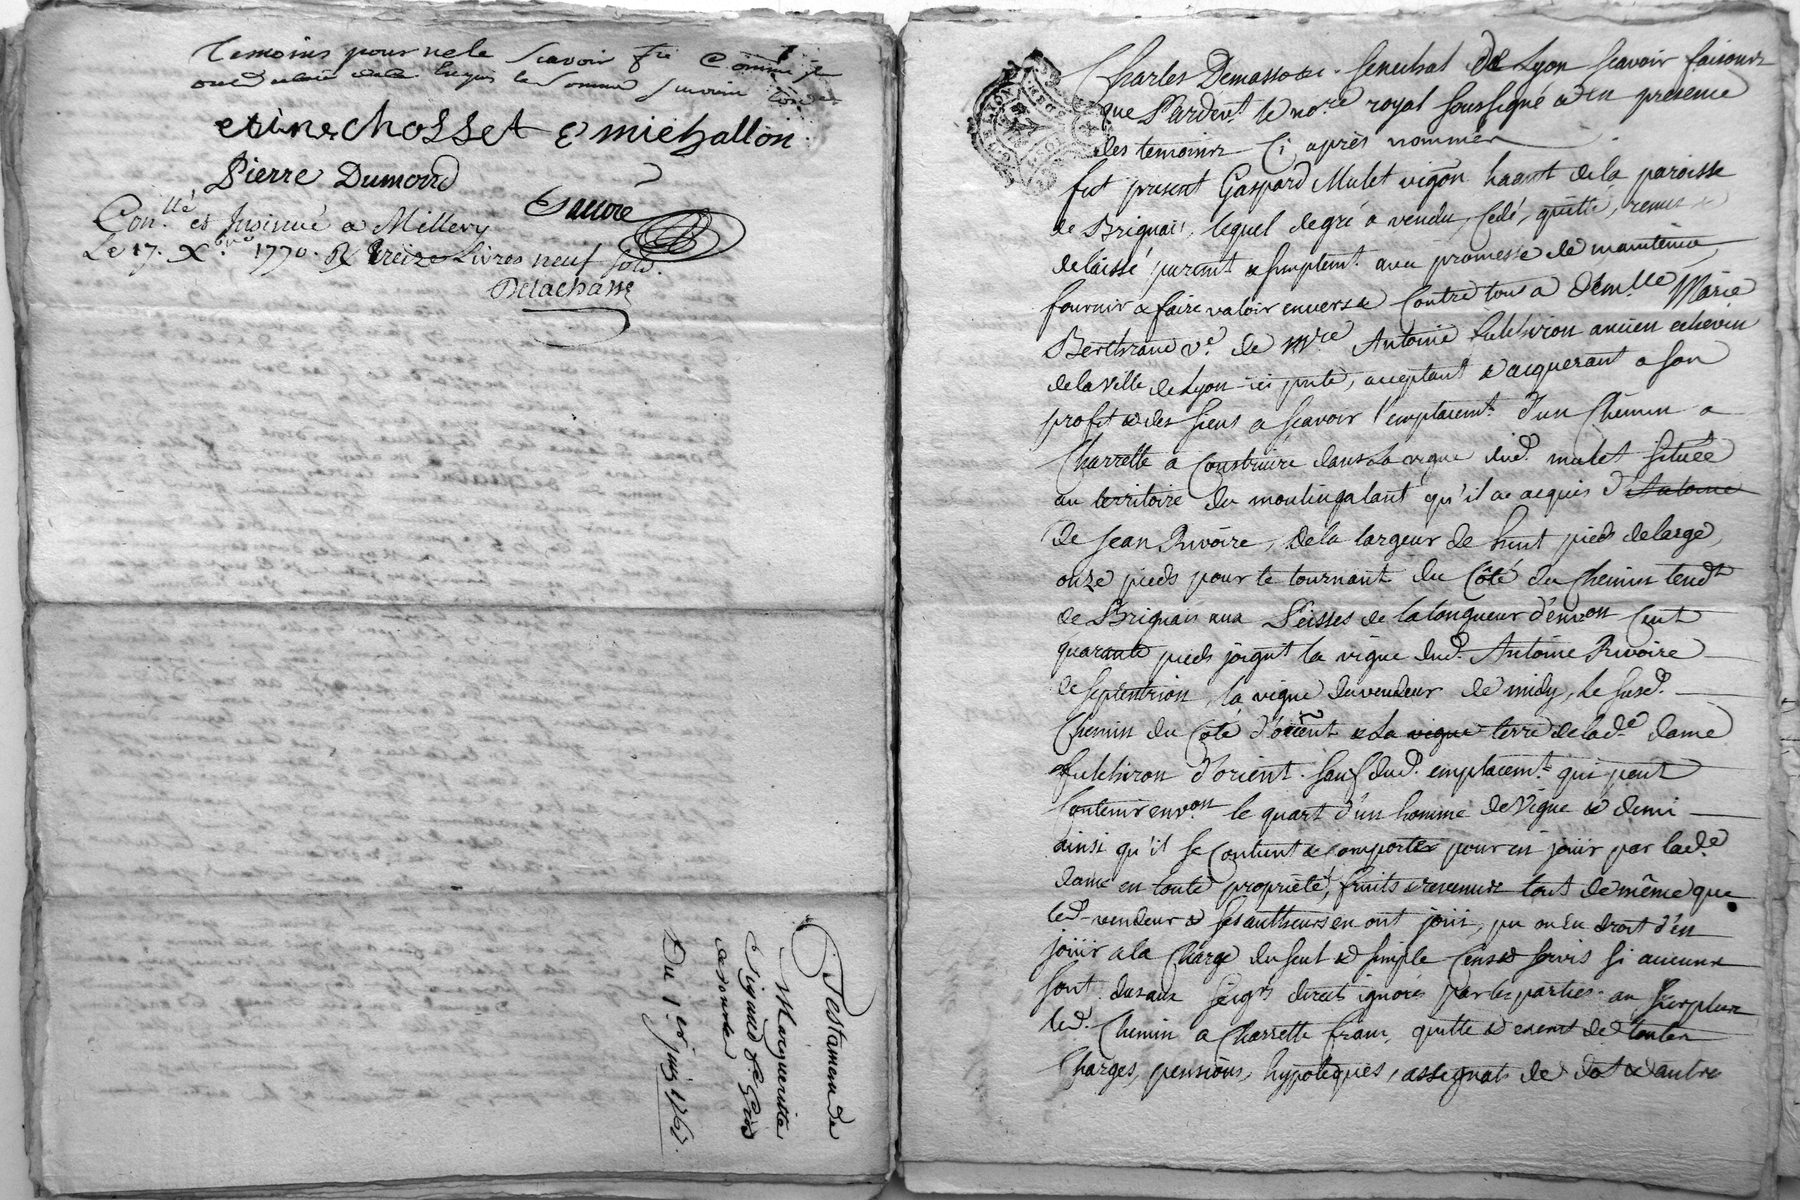 temoins pour ne le scavoir
etiene chosset & michallon
Pierre Dumord
Con.llé et Insinué a Millery
Le 17. Xbre 1770. R treize Livres neuf sols.
Delachasse
Testament de
Margueritte
Du 1er juin 1762
Charles Demasso &c. senechal de Lyon scavoir faisons
que Pardevt le nore royal soussigné & en presence
des temoins Ci après nommés
fut present Gaspard Mulet vigon haant de la paroisse
de Brignais, lequel de gré a vendu, cedé, quitté, remis &
delaissé puremt & simplemt avec promesse de maintenir,
fournir & faire valoir envers & Contre tous a demlle Marie
Berthrand ve. de mre Antoine fulchiron ancien echevin
de la ville de Lyon ici pnte, acceptant & acquerant a son
profit & des siens a scavoir l'emplacemt. d'un Chemin a
Charrette a Construire dans la vigne dud. mulet située
au territoire du moulingalant qu'il a acquis d'Antoine
de Jean Rivoire, de la largeur de huit pieds de large,
onze pieds pour le tournant du Côté du Chemin tendt
de Brignais aux de la longueur d'envon Cent
quarante pieds joignt la vigne dud. Antoine Rivoire
de septentrion, la vigne du vendeur de midy, le susd.
Chemin du Coté d'ocient & la vigne terre de lade. dame
fulchiron d'orient. sauf dud. emplacemt. qui peut
Contenir envon le quart d'un homme de vigne & demi
ainsi qu'il se Contient & comporte pour en jouir par lade.
dame en toute propriété, fruits & revenus tout de même que
led. vendeur & ses autheurs en ont joui, pu ou du droit d'en
jouir a la Charge du seul & simple Cens & servis si aucuns
sont dus aux seigrs directs ignorés par les parties. au surplus
led. Chemin a Charrette franc, quitte & exemt de toutes
Charges, pensions, hypoteques, assignats de dot & autre